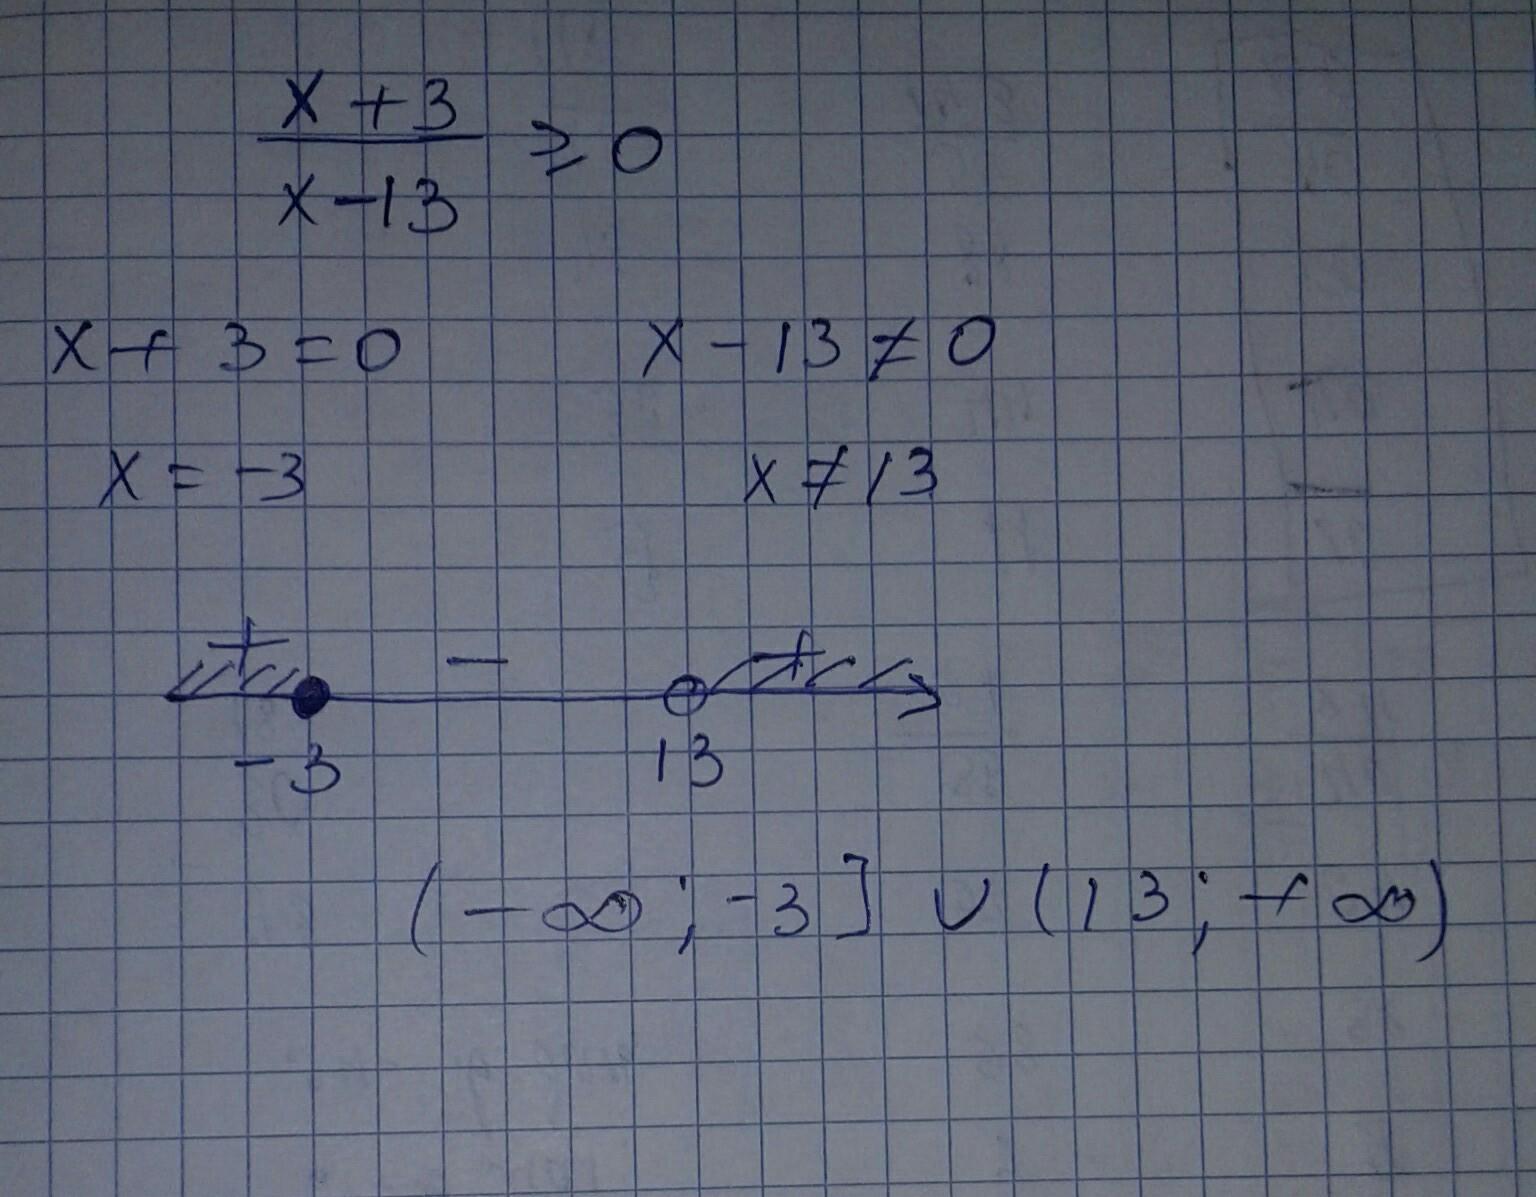 x + 3
x - 13 ⩾ 0
x + 3 = 0 x - 13 ≠ 0
x = -3 x ≠ 13
+ - +
-3 13
(-∞; -3] ∪ (13; +∞)